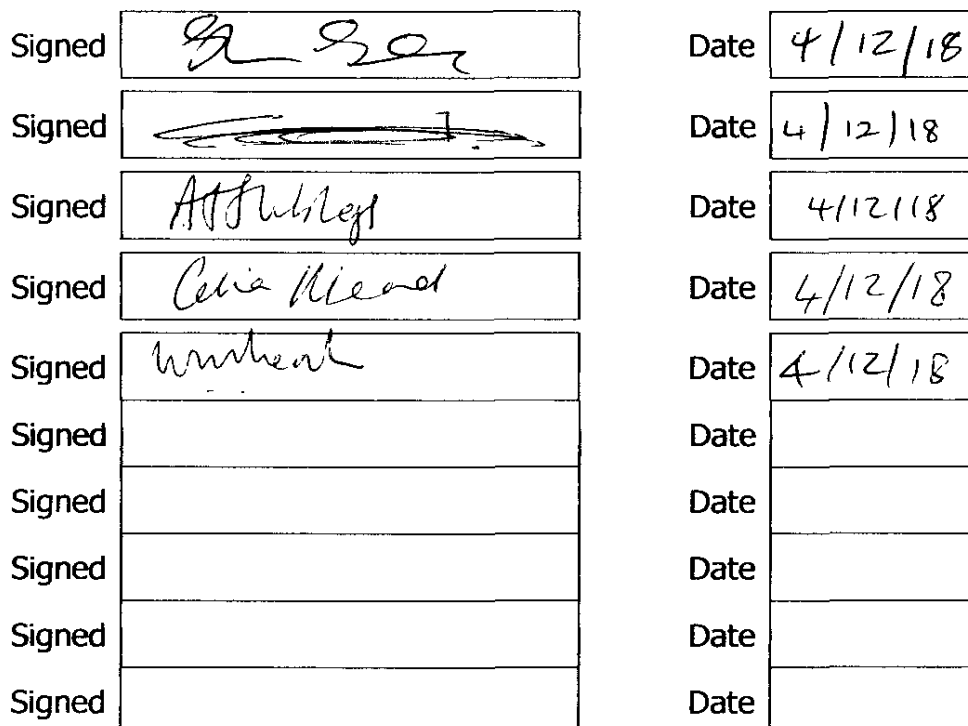 Signed Date 4/12/18
Signed Date 4/12/18
Signed Date 4/12/18
Signed Celia Date 4/12/18
Signed Date 4/12/18
Signed Date
Signed Date
Signed Date
Signed Date
Signed Date